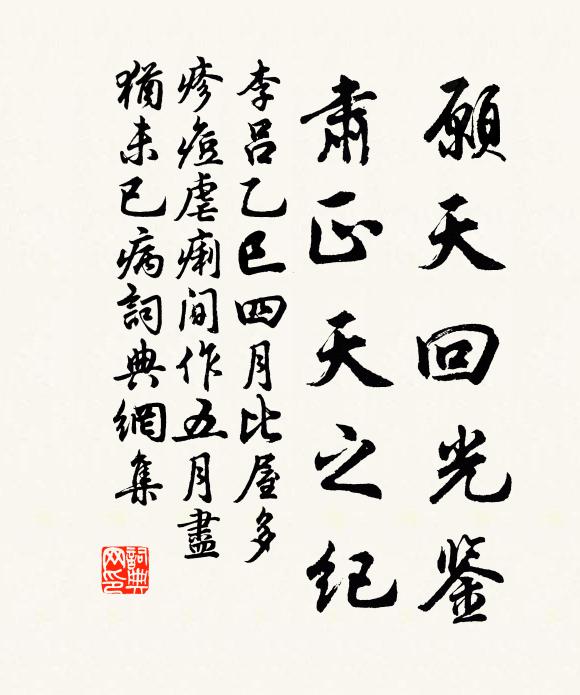 願天回光鉴
肅正天之纪
李呂乙巳四月比屋多
疹痘虐痢间作五月盡
猶未已病詞典網集
詞典网印